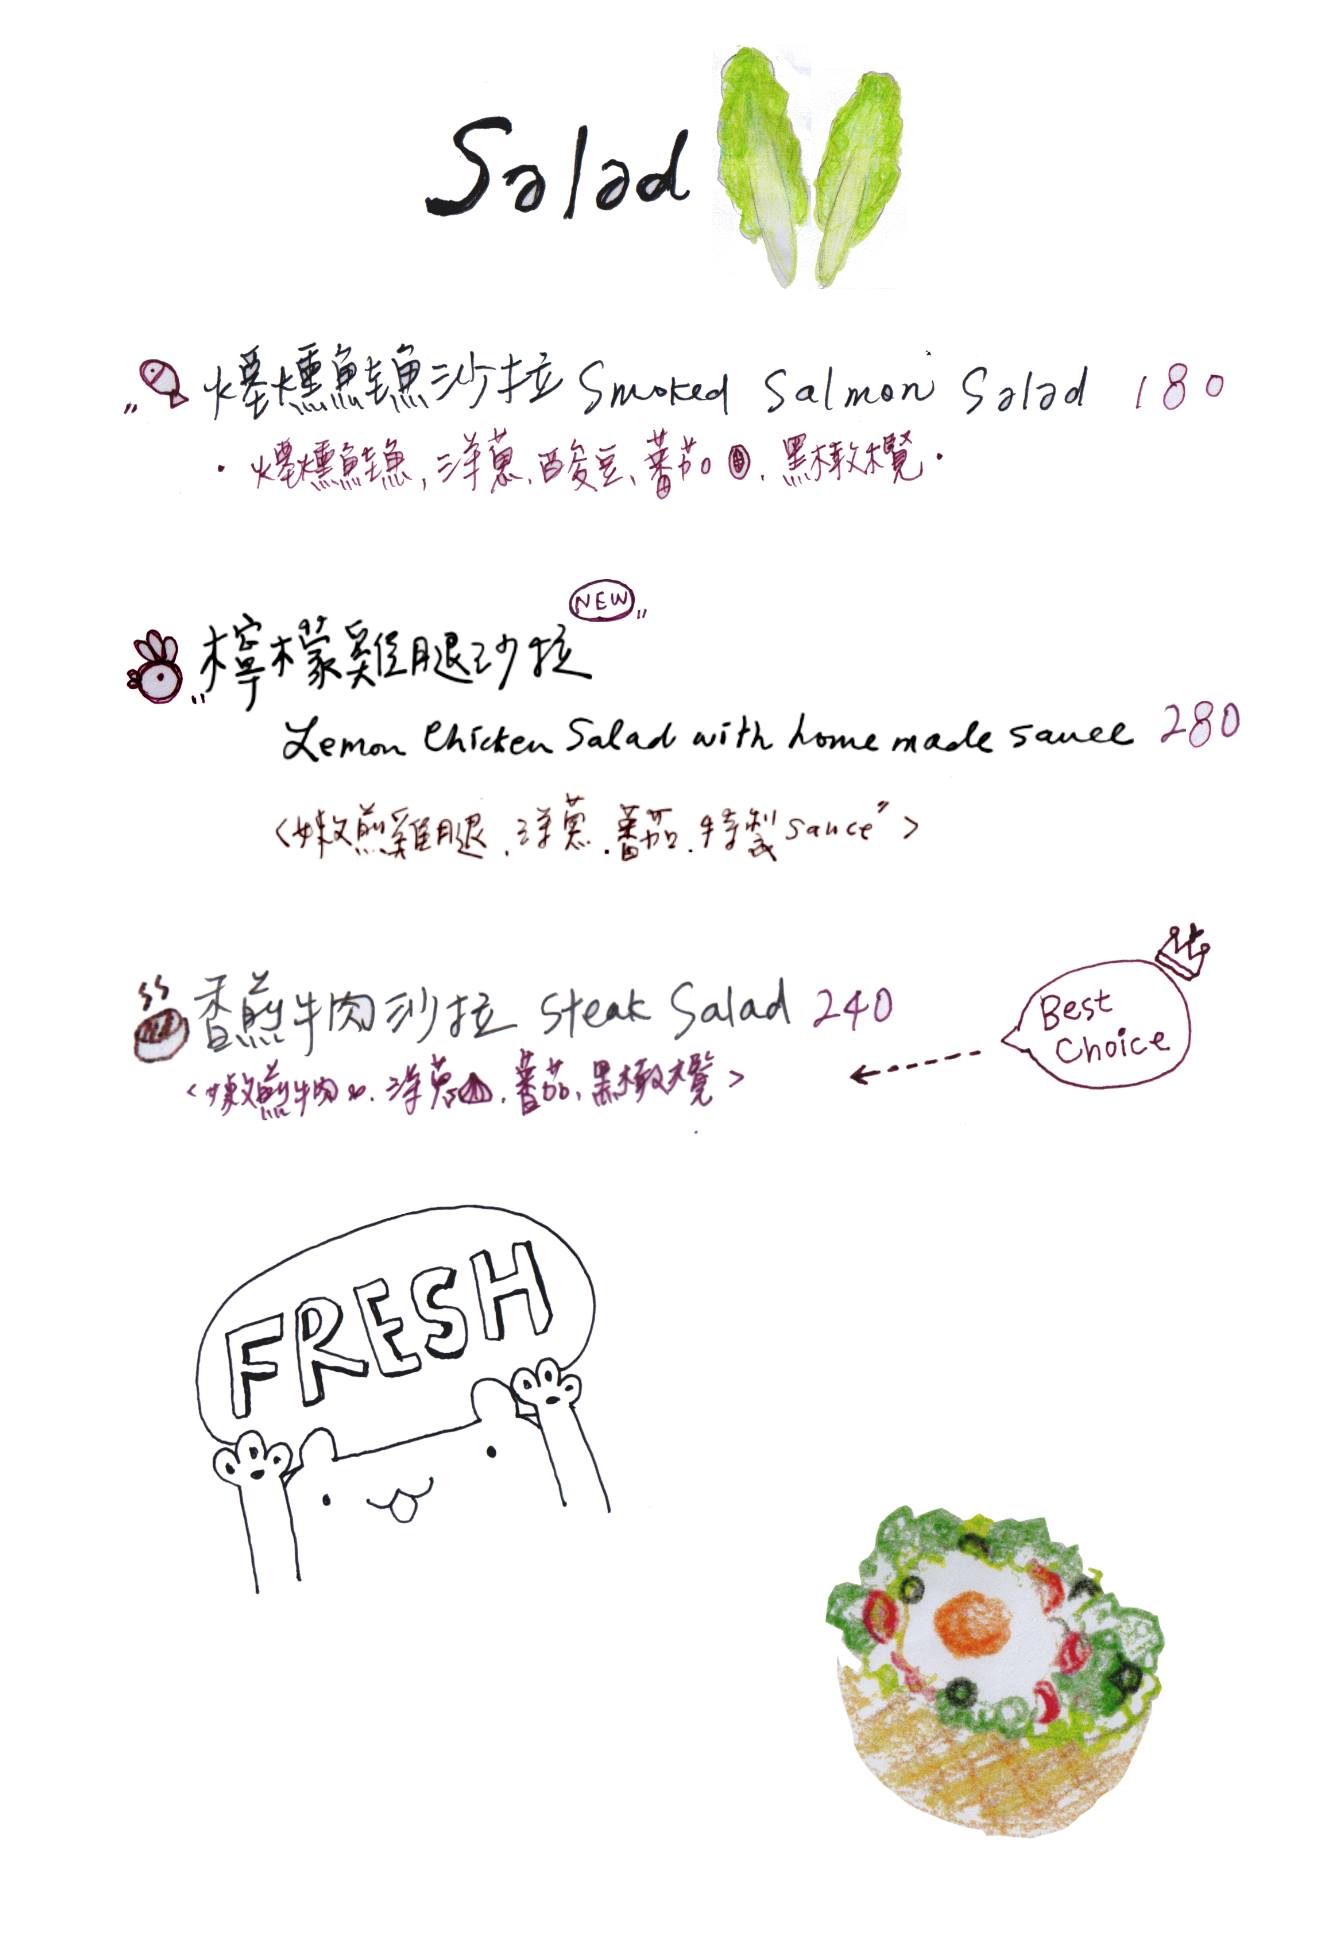 Salad
煙燻鮭魚沙拉 Smoked Salmon Salad 180
・煙燻鮭魚, 洋蔥, 酸豆, 蕃茄, 黑橄欖・
NEW
檸檬雞腿沙拉
Lemon Chicken Salad with home made sauce 280
<嫩煎雞腿.洋蔥.蕃茄.特製sauce>
香煎牛肉沙拉 Steak Salad 240
Best
Choice
<嫩煎牛肉.洋蔥.蕃茄,黑橄欖>
FRESH